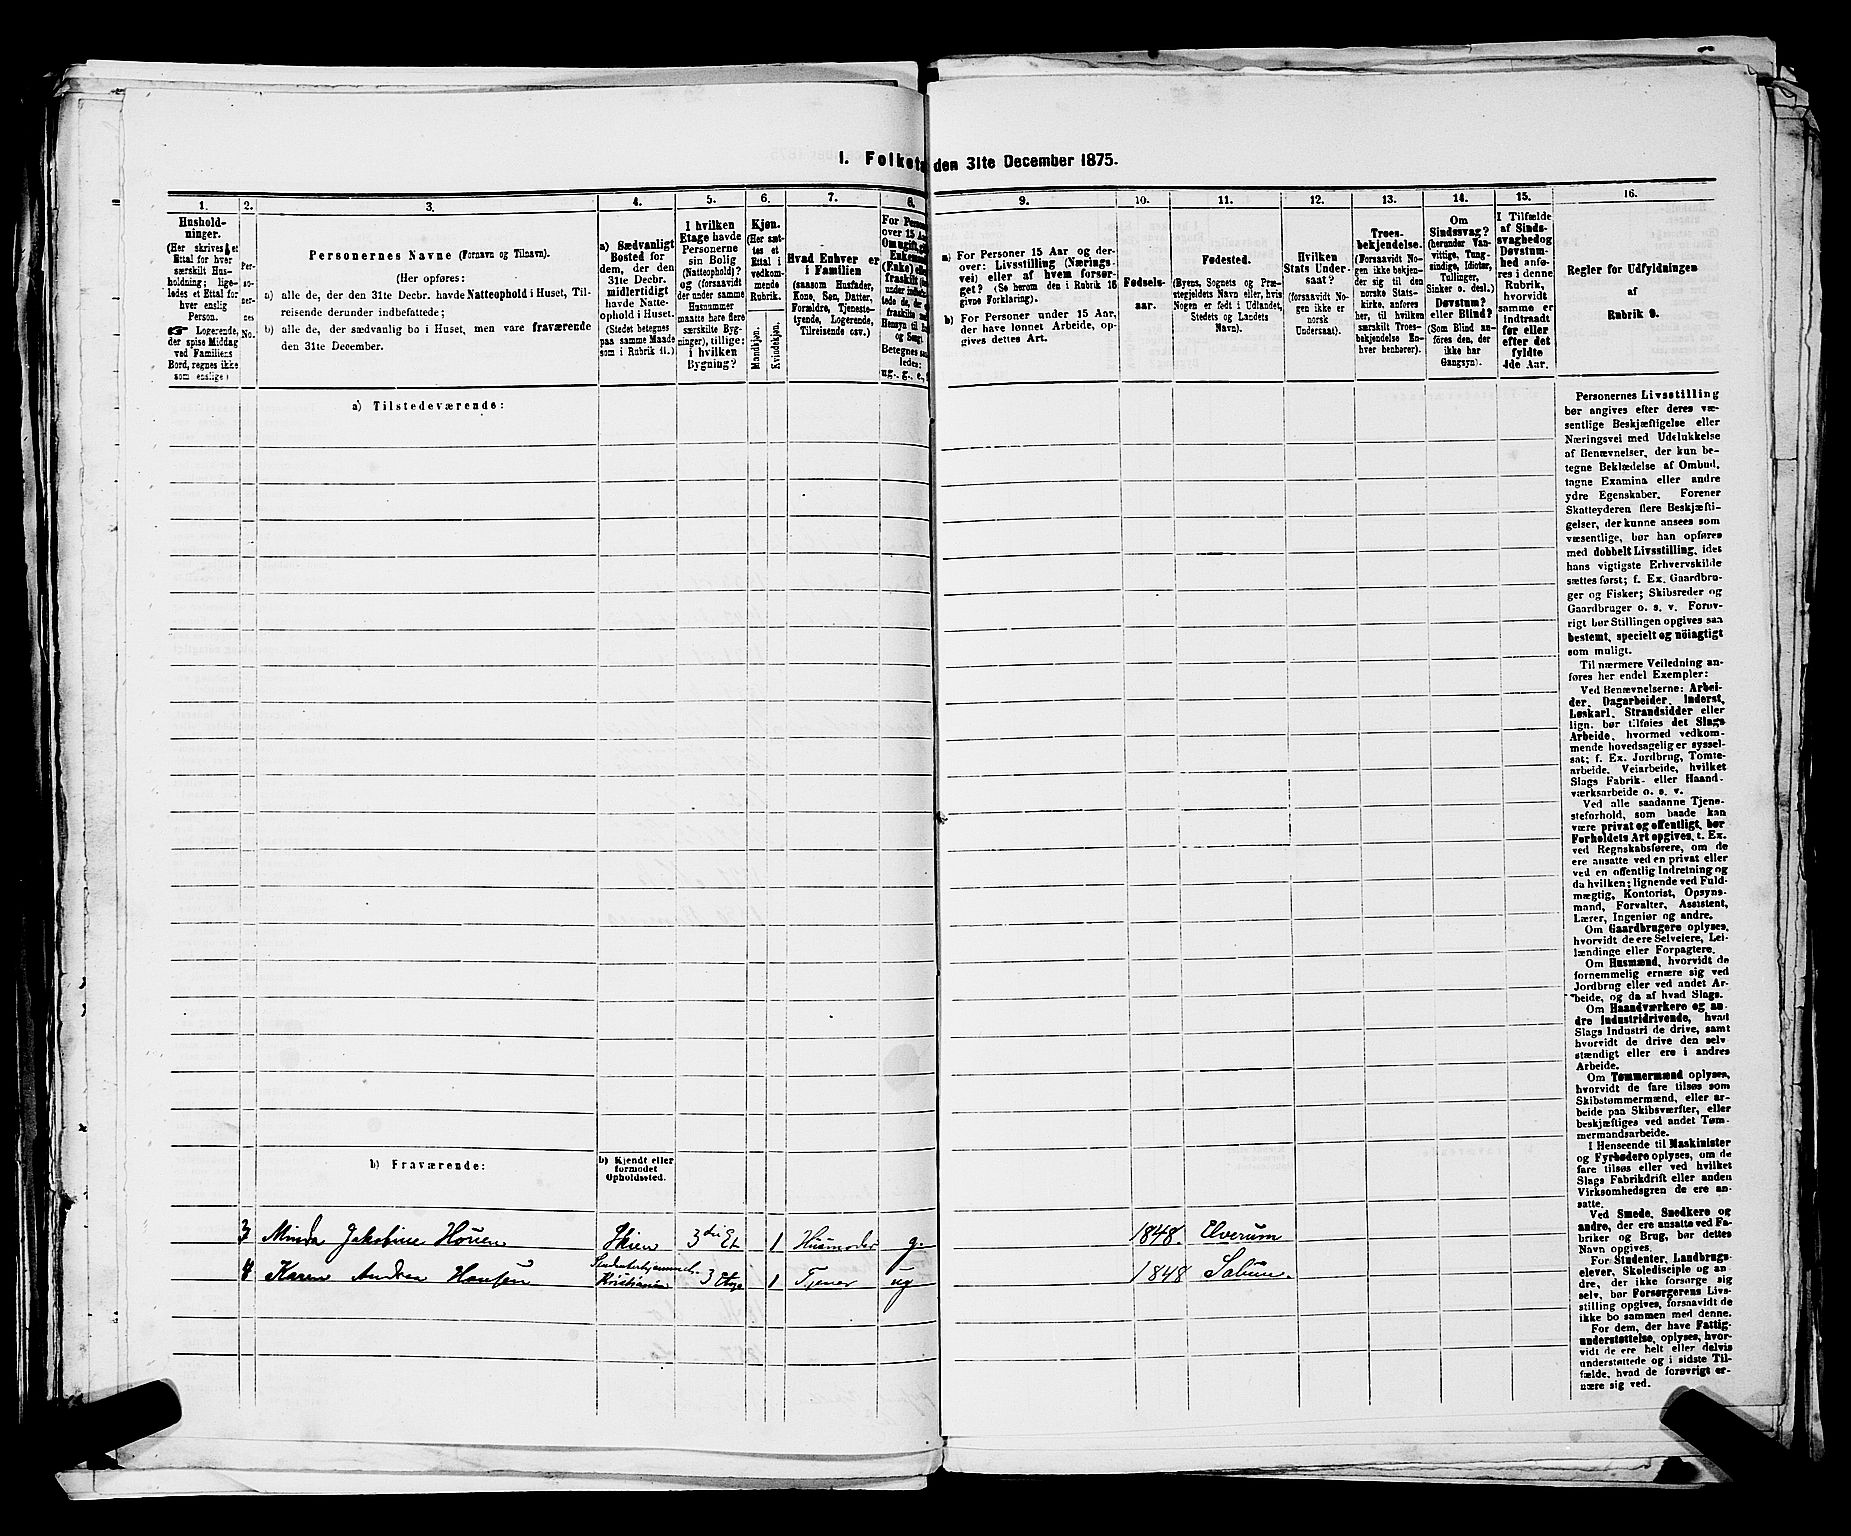 I. Folket
den 31te December 1875.
1.
2.
3.
4.
5.
6.
7.
8.
9.
10.
11.
12.
13.
14.
15.
16.
Hushold-
ninger.
(Her skrives et
Ettal for hver
særskilt Hus-
holdning; lige-
ledes et Ettal for
hver enslig
Person.
☞ Logerende,
der spise Middag
ved Familiens
Bord, regnes ikke
som enslige)
Per-
so-
ner-
nes
No.
Personernes Navne (Fornavn og Tilnavn).
(Her opføres:
a) alle de, der den 31te Decbr. havde Natteophold i Huset, Til-
reisende derunder indbefattede;
b) alle de, der sædvanlig bo i Huset, men vare fraværende
den 31te December.
a) Sædvanligt
Bosted for
dem, der den
31te Decbr.
midlertidigt
havde Natte-
ophold i Huset.
(Stedet betegnes
paa samme Maade
som i Rubrik 11.)
I hvilken
Etage havde
Personerne
sin Bolig
(Natteophold)?
og (forsaavidt
der under samme
Husnummer
maatte høre flere
særskilte Byg-
ninger), tillige:
i hvilken
Bygning?
Kjøn.
(Her sæt-
tes et
Ettal i
vedkom-
mende
Rubrik.
Mandkjøn.
Kvindekjøn.
Hvad Enhver er
i Familien
(saasom Husfader,
Kone, Søn, Datter,
Forældre, Tjeneste-
tyende, Logerende,
Tilreisende osv.)
For Person
over 15 Aa
Om ugift, gi
Enkeman
(Enke) elle
fraskilt
under indbe
tede de, d
fraskilte
Hensyn til B
og Seng).
Betegnes saa
ledes:
ug., g., e., f
a) For Personer 15 Aar og der-
over: Livsstilling (Nærings-
vei) eller af hvem forsør-
get? (Se herom den i Rubrik 16
givne Forklaring).
b) For Personer under 15 Aar,
der have lønnet Arbeide, op-
gives dettes Art.
Fødsels-
aar.
Fødested.
(Byens, Sognets og Præ-
stegjeldets Navn eller, hvis
Nogen er født i Udlandet,
Stedets og Landets
Navn).
Hvilken
Stats Under-
saat?
(forsaavidt No-
gen ikke er
norsk
Undersaat).
Troes-
bekjendelse.
(Forsaavidt No-
gen ikke bekjen-
der sig til den
norske Stats-
kirke, anføres
her, til hvilken
særskilt Troes-
bekjendelse En-
hver benhører).
Om
Sindssvag?
(herunder Van-
vittige, Tung-
sindige, Idioter,
Tullinger,
Sinker o. desl.)
Døvstum?
eller Blind?
(Som Blind an-
føres den, der
ikke har
Gangsyn).
I Tilfælde
af Sinds-
svaghed og
Døvstum-
hed anfø-
res i denne
Rubrik,
hvorvidt
samme er
indtraadt
før eller
efter det
fyldte
4de Aar.
Regler for Udfyldningen
af
Rubrik 9.
a) Tilstedeværende:
Personernes Livsstilling
bør angives efter deres væ-
sentlige Beskjæftigelse eller
Næringsvei med Udelukkelse
af Benævnelser, der kun be-
tegne Beklædelse af Ombud,
tagne Examina eller andre
ydre Egenskaber. Forener
Skatteyderen flere Beskjæfti-
gelser, der kunne ansees som
væsentlige, bør han opføres
med dobbelt Livsstilling, idet
hans vigtigste Erhvervskilde
sættes først; f. Ex. Gaardbru-
ger og Fisker; Skibsreder og
Gaardbruger o. s. v. Forøv-
rigt bør Stillingen opgives saa
bestemt, specielt og nøiagtigt
som muligt.
Til nærmere Veiledning an-
føres her endel Exempler:
Ved Benævnelserne: Arbei-
der, Dagarbeider, Inderst,
Løskarl, Strandsidder eller
lign. bør tilføies det Slags
Arbeide, hvormed vedkom-
mende hovedsagelig er syssel-
sat; f. Ex. Jordbrug, Tomte-
arbeide, Veiarbeide, hvilket
Slags Fabrik- eller Haand-
værksarbeide o. s. v.
Ved alle saadanne Tjene-
steforhold, som baade kan
være privat og offentligt, bør
Forholdets Art opgives, t. Ex.
ved Regnskabsførere, om de
ere ansatte ved en privat eller
ved en offentlig Indretning og
da hvilken; lignende ved Fuld-
mægtig, Kontorist, Opsyns-
mand, Forvalter, Assistent,
Lærer, Ingeniør og andre.
Om Gaardbrugere oplyses,
hvorvidt de ere Selveiere, Lei-
lændinge eller Forpagtere.
Om Husmænd, hvorvidt de
fornemmelig ernære sig ved
Jordbrug eller ved andet Ar-
beide, og da af hvad Slags.
Om Haandværkere og an-
dre Industridrivende, hvad
Slags Industri de drive, samt
hvorvidt de drive den selv-
stændigt eller ere i andres
Arbeide.
Om Tømmermænd oplyses,
hvorvidt de fare tilsøs som
Skibstømmermænd, eller ar-
beide paa Skibsværfter, eller
beskjæftiges ved andet Tøm-
mermandsarbeide.
I Henseende til Maskinister
og Fyrbødere oplyses, om de
fare tilsøs eller ved hvilket
Slags Fabrikdrift eller anden
Virksomhedsgren de ere an-
satte.
Ved Smede, Snedkere og
andre, der ere ansatte ved Fa-
briker og Brug, bør dettes
Navn opgives.
For Studenter, Landbrugs-
elever, Skoledisciple og an-
dre, der ikke forsørge sig
selv, bør Forsørgerens Livs-
stilling opgives, forsaavidt de
ikke bo sammen med denne.
For dem, der have Fattig-
understøttelse, oplyses, hvor-
vidt de ere helt eller delvis
understøttede og i sidste Til-
fælde, hvad de forøvrigt er-
nære sig ved.
b) Fraværende:
b) Kjendt eller
formodet
Opholdssted.
3 Minda Jakobine Houen Skien 3die Et 1 Husmoder g. 1848. Elverum
4 Karen Andrea Hansen Studenterhjemmet Kristiania 3 Etage 1 Tjener ug 1848 Solum.